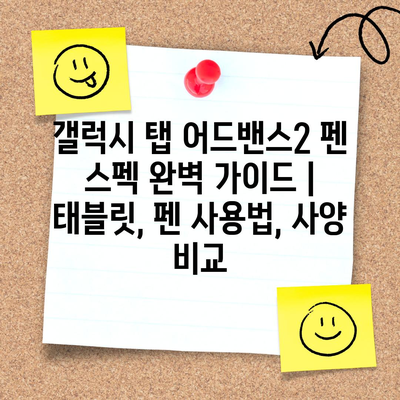 갤럭시 탭 어드밴스2 펜
스펙 완벽 가이드 |
태블릿, 펜 사용법, 사양
비교